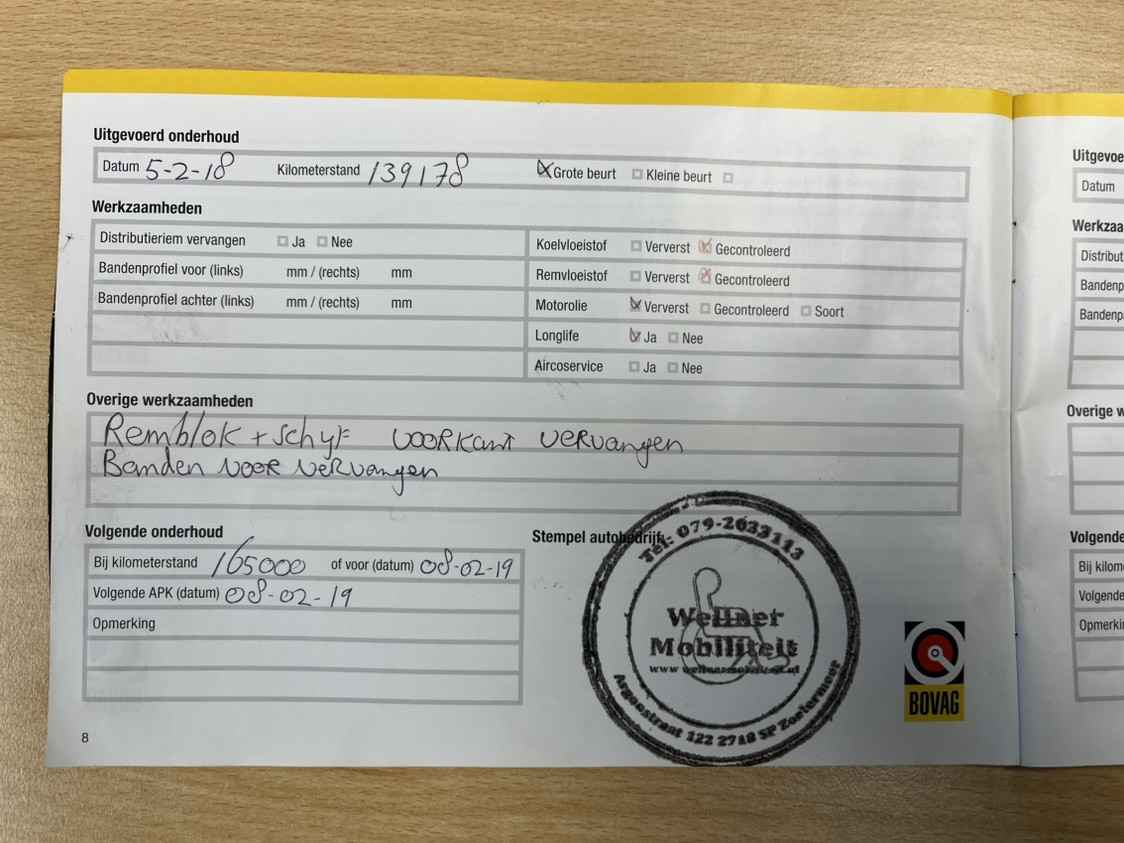 Uitgevoerd onderhoud
Datum 5-2-18 Kilometerstand 139178 Grote beurt Kleine beurt
Werkzaamheden
Distributieriem vervangen Ja Nee
Bandenprofiel voor (links) mm / (rechts) mm
Bandenprofiel achter (links) mm / (rechts) mm
Koelvloeistof Ververst Gecontroleerd
Remvloeistof Ververst Gecontroleerd
Motorolie Ververst Gecontroleerd Soort
Longlife Ja Nee
Aircoservice Ja Nee
Overige werkzaamheden
Remblok + schijf voorkant vervangen
Banden voor vervangen
Volgende onderhoud
Bij kilometerstand 165000 of voor (datum) 08-02-19
Volgende APK (datum) 08-02-19
Opmerking
Stempel autobedrijf
Tel: 079-2033113
Wellner
Mobiliteit
Argonstraat 122 2718 SP Zoetermeer
BOVAG
8
Uitgevoe
Datum
Werkzaa
Distribut
Bandenp
Bandenpa
Overige w
Volgende
Bij kilom
Volgende
Opmerkin